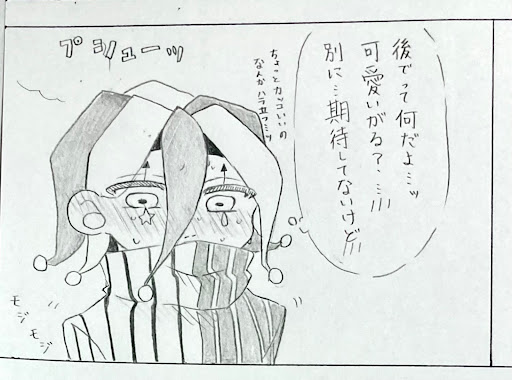 後でって何だよ…ッ
可愛いがる？…!!!
別に…期待してないけど!!!
ちょっとカッコいいの
なんかハラ立つ…ッ
プシューッ
モジ
モジ